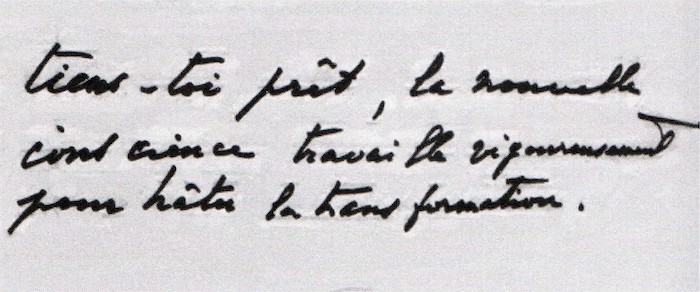 tiens-toi prêt, la nouvelle
conscience travaille vigoureusement
pour hâter la transformation.